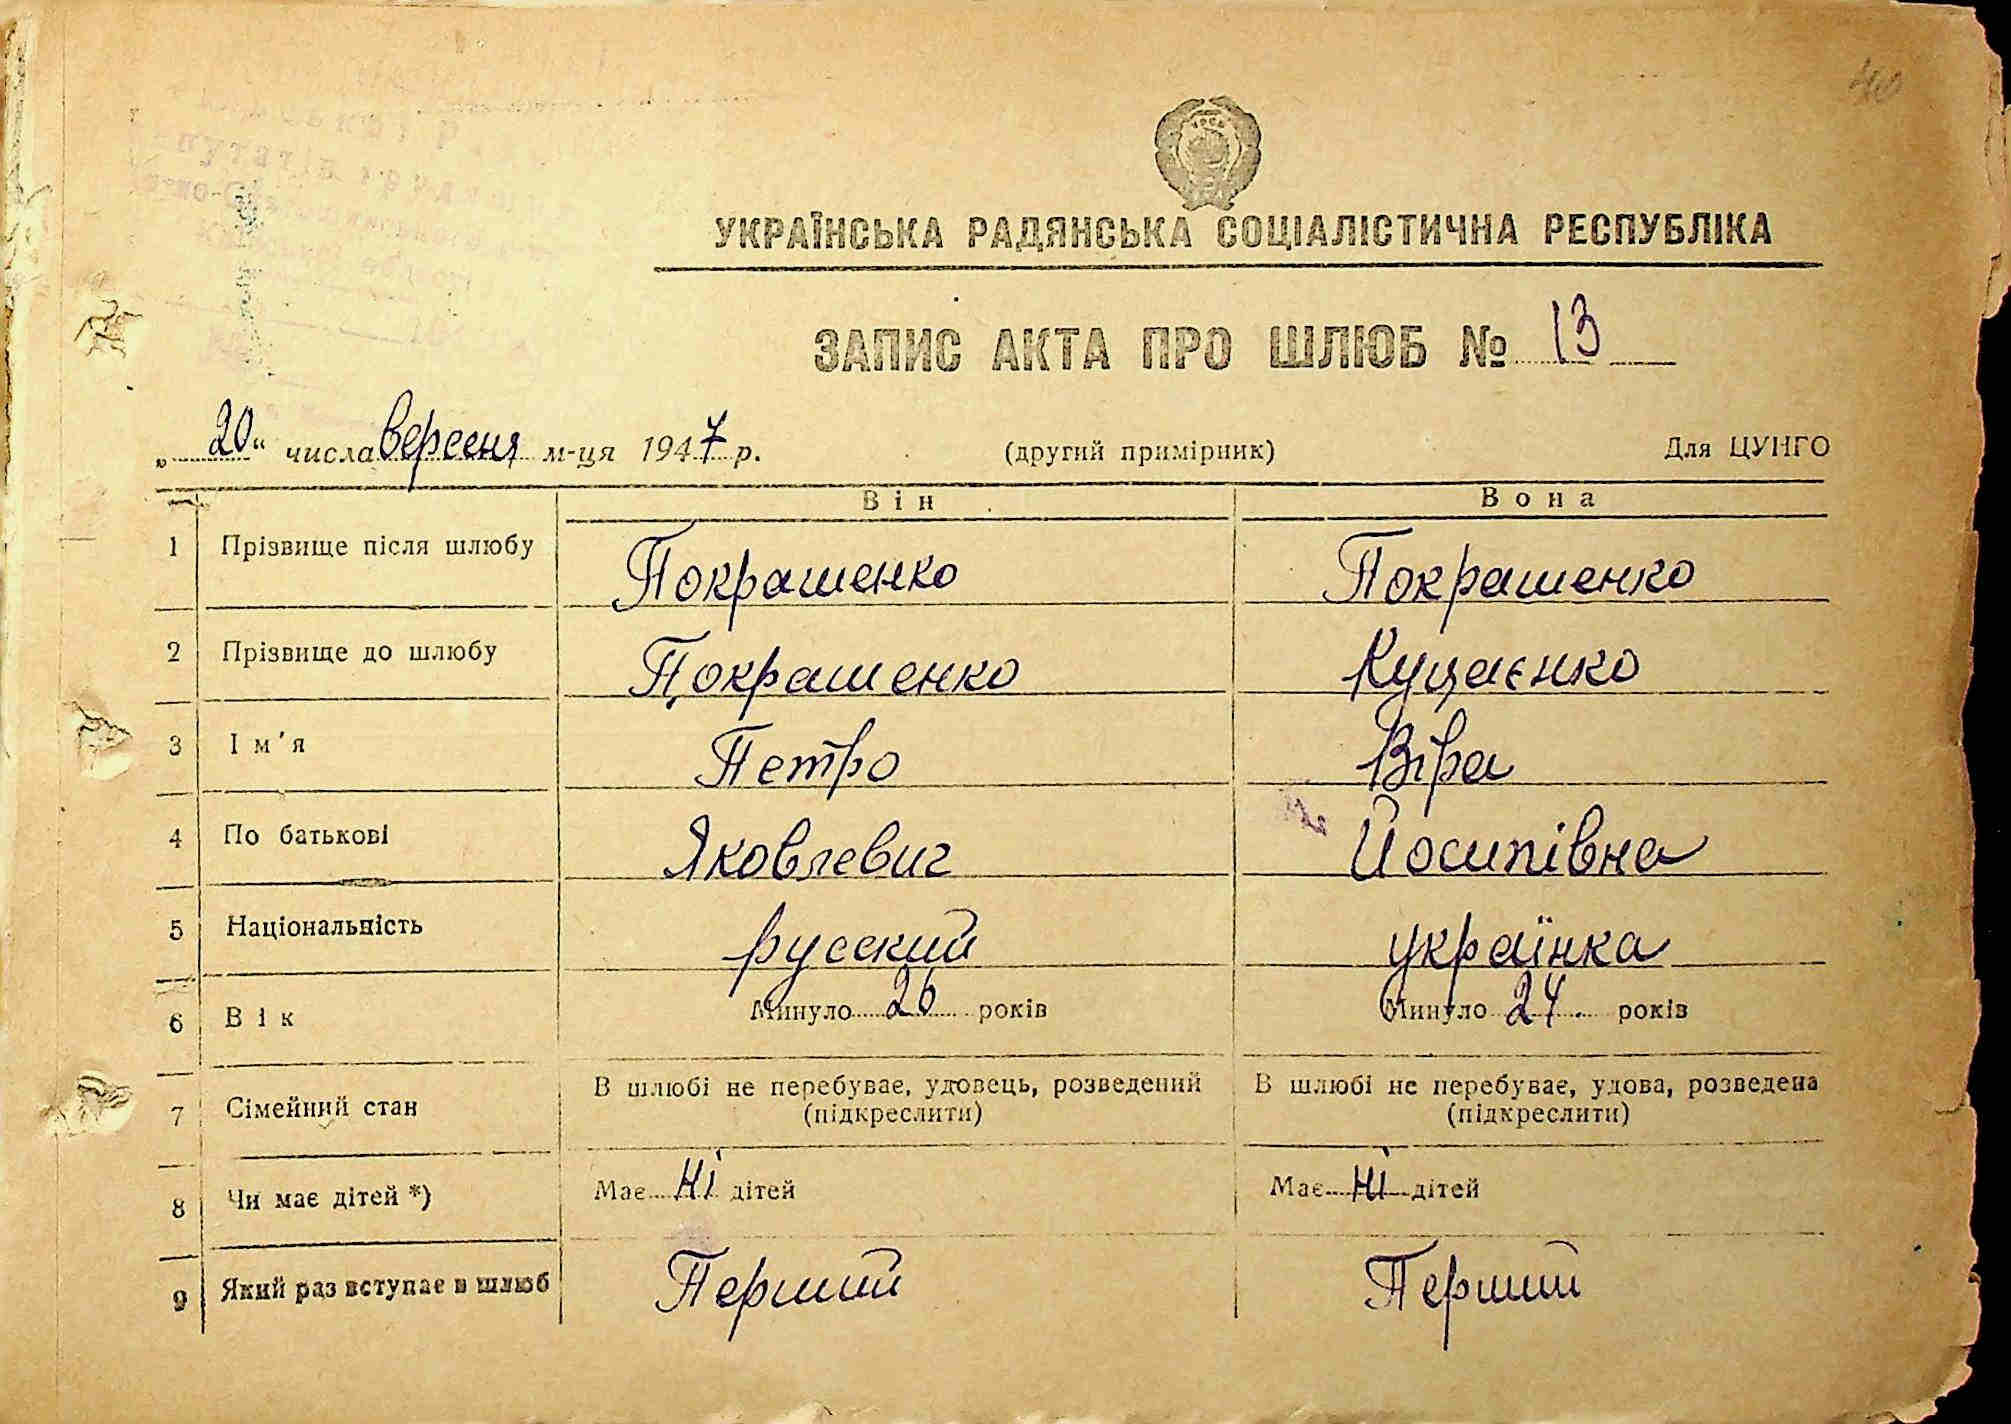 40
УРСР
УКРАЇНСЬКА РАДЯНСЬКА СОЦІАЛІСТИЧНА РЕСПУБЛІКА
ЗАПИС АКТА ПРО ШЛЮБ № 13
„20“ числа вересня м-ця 1947 р. (другий примірник) Для ЦУНГО
Він Вона
1 Прізвище після шлюбу Покрашенко Покрашенко
2 Прізвище до шлюбу Покрашенко Куцаєнко
3 Ім'я Петро Віра
4 По батькові Яковлевич Йосипівна
5 Національність русский українка
6 Вік Минуло 26 років Минуло 24 років
7 Сімейний стан В шлюбі не перебуває, удовець, розведений (підкреслити) В шлюбі не перебуває, удова, розведена (підкреслити)
8 Чи має дітей *) Має ні дітей Має ні дітей
9 Який раз вступає в шлюб Перший Перший